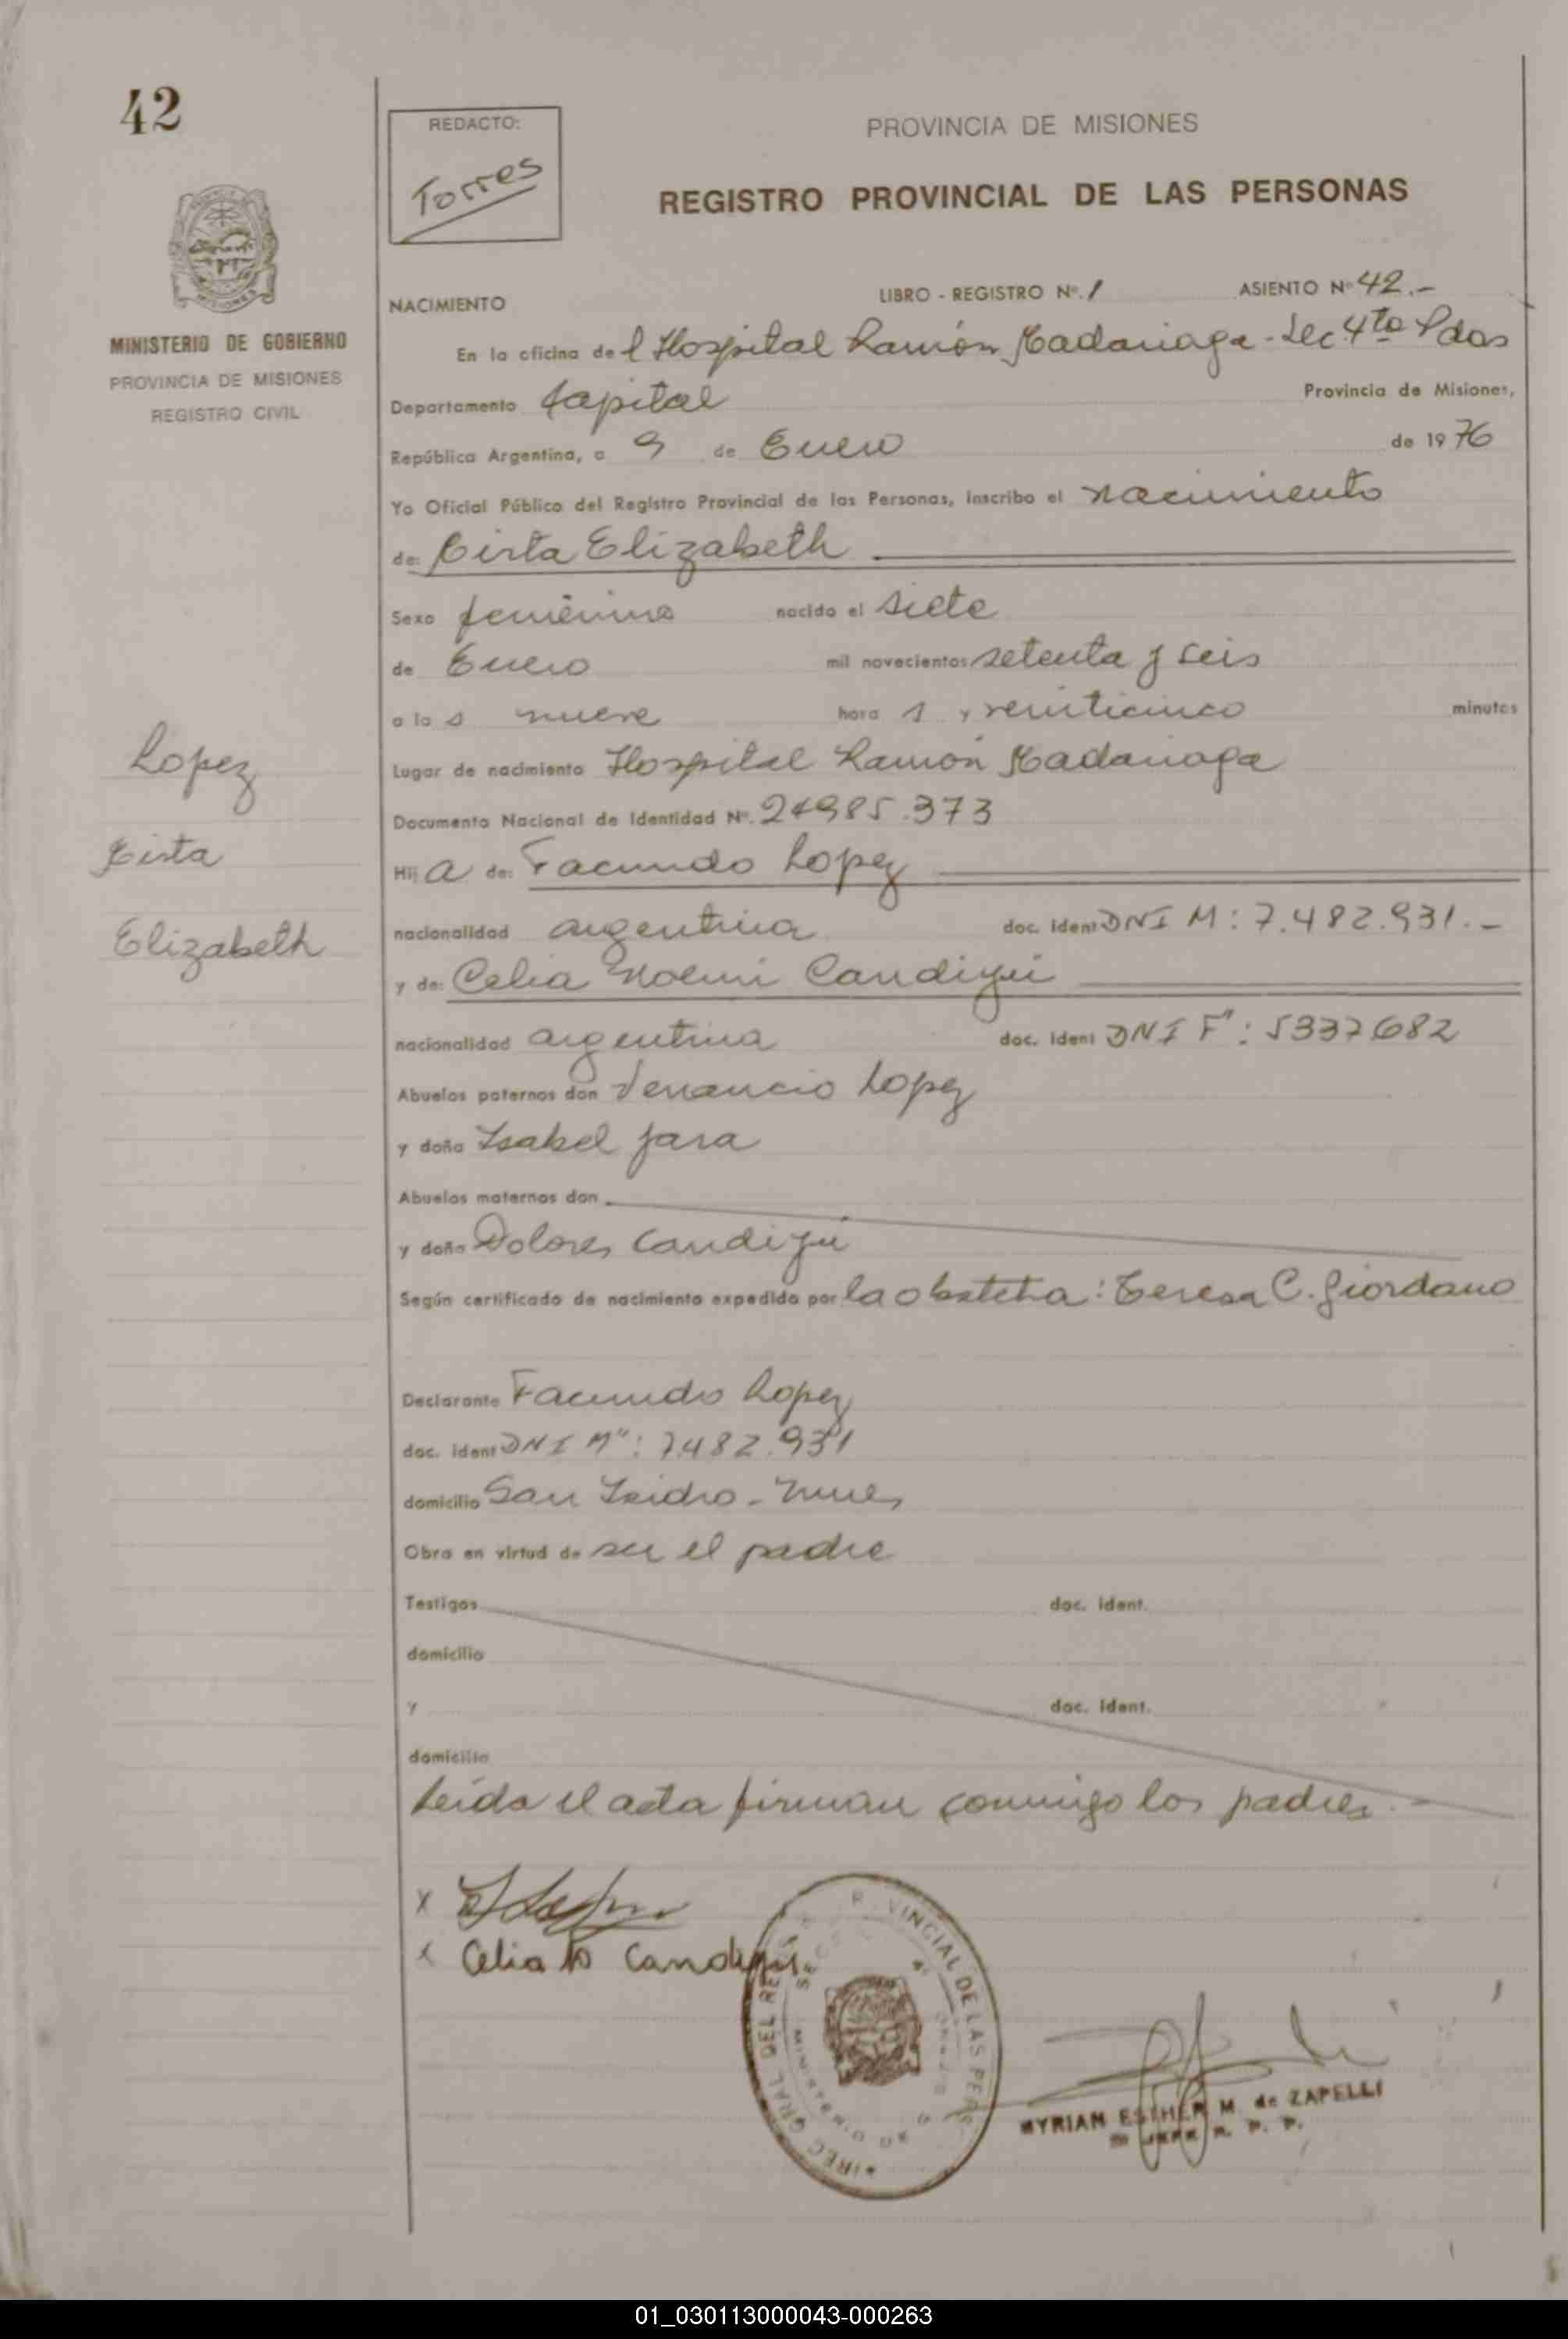 42
REDACTO:
Torres
PROVINCIA DE MISIONES
REGISTRO PROVINCIAL DE LAS PERSONAS
MINISTERIO DE GOBIERNO
PROVINCIA DE MISIONES
REGISTRO CIVIL
NACIMIENTO LIBRO - REGISTRO Nº. 1 ASIENTO Nº 42.-
En la oficina de l Hospital Ramón Madariaga - Sec. 4ta Pdas
Departamento Capital Provincia de Misiones,
República Argentina, a 9 de Enero de 1976
Yo Oficial Público del Registro Provincial de las Personas, inscribo el nacimiento
de: Mirta Elizabeth
Sexo femenino nacido el siete
de Enero mil novecientos setenta y seis
a la s nueve hora s y veinticinco minutos
Lugar de nacimiento Hospital Ramón Madariaga
Documento Nacional de Identidad Nº. 24985.373
Hij a de: Facundo Lopez
nacionalidad argentina doc. ident DNI M: 7.482.931.-
y de: Celia Noemi Candigui
nacionalidad argentina doc. ident DNI F: 5337682
Abuelos paternos don Venancio Lopez
y doña Isabel Jara
Abuelos maternos don
y doña Dolores Candigui
Según certificado de nacimiento expedido por la obstetra: Teresa C. Giordano
Declarante Facundo Lopez
doc. ident DNI M: 7.482.931
domicilio San Isidro -
Obra en virtud de ser el padre
Testigos doc. ident.
domicilio
y doc. ident.
domicilio
Leída el acta firman conmigo los padres.-
Lopez
Mirta
Elizabeth
x
x Celia N Candigui
MYRIAN ESTHER M. de ZAPELLI
01_030113000043-000263